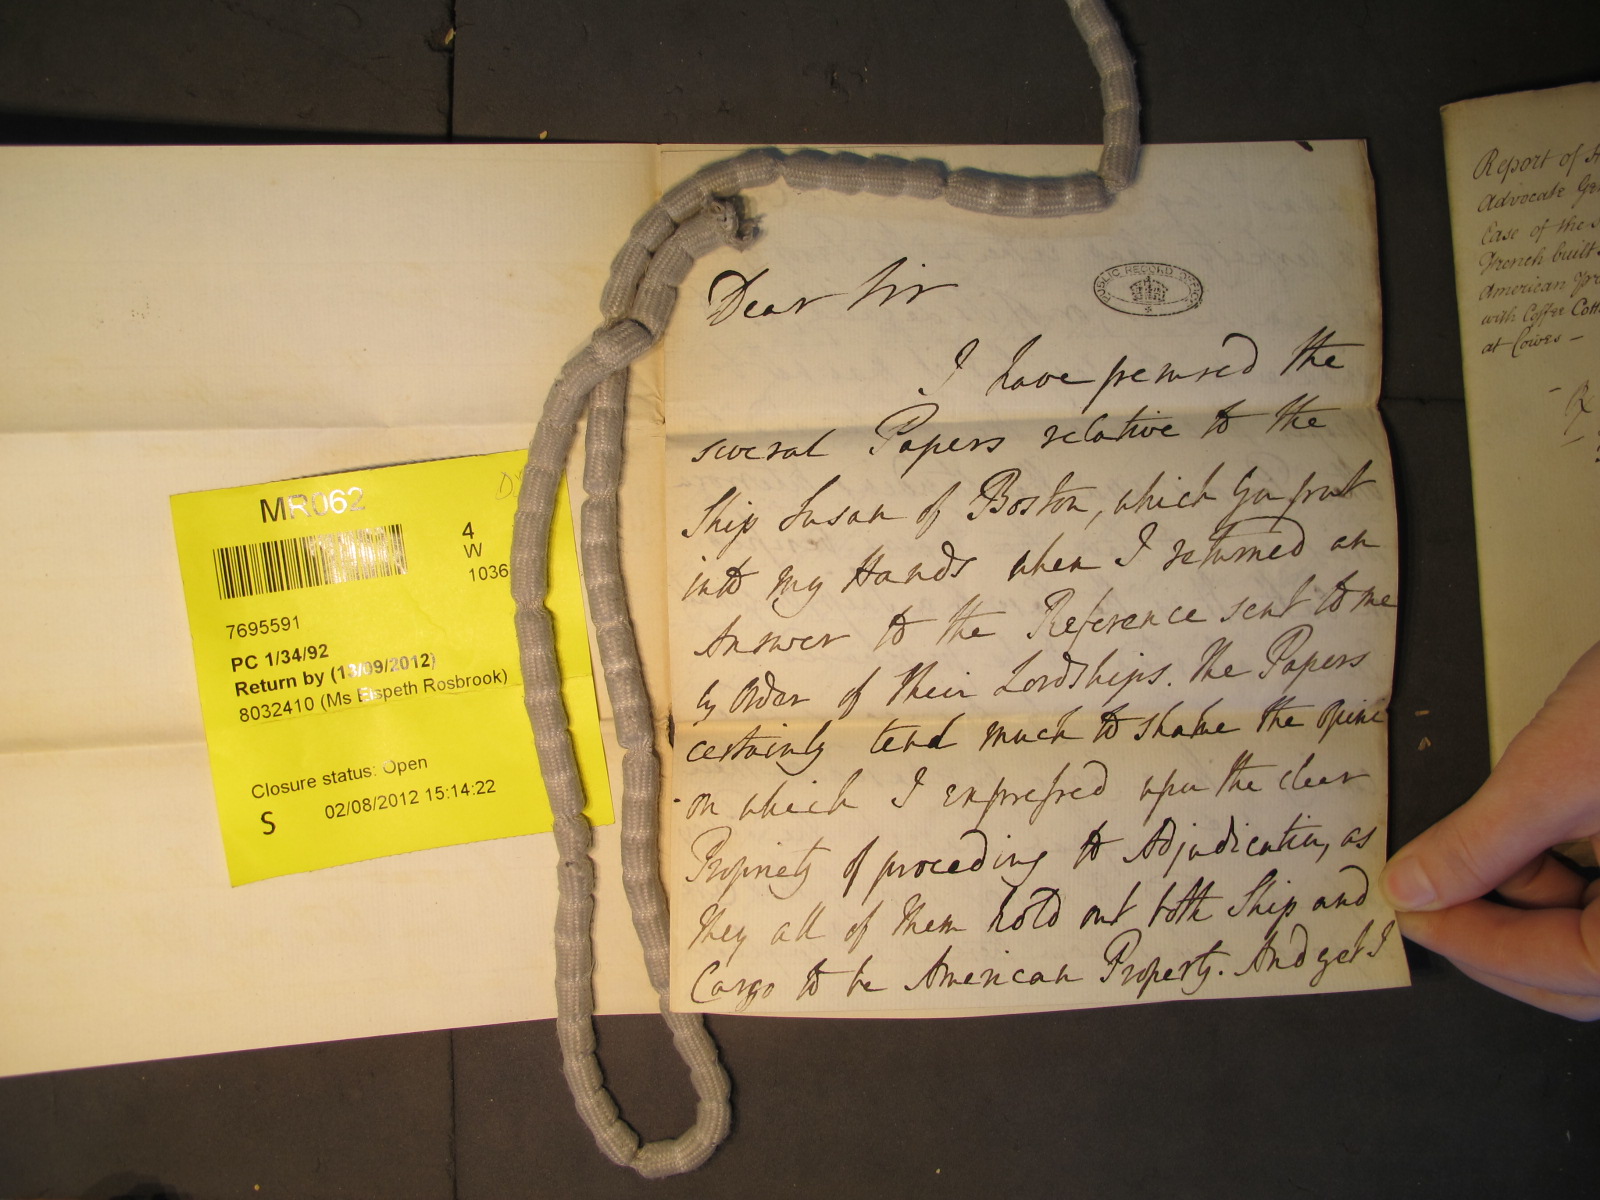 MR062
4
W
1036
7695591
PC 1/34/92
Return by (13/09/2012)
8032410 (Ms Elspeth Rosbrook)
Closure status: Open
S 02/08/2012 15:14:22
PUBLIC RECORD OFFICE
Dear Sir
I have perused the
several Papers relative to the
Ship Susan of Boston, which You put
into my Hands when I returned an
Answer to the Reference sent to me
by Order of their Lordships. The Papers
certainly tend much to shake the Opini
on which I expressed upon the clear
Propriety of proceeding to Adjudication, as
they all of them hold out both Ship and
Cargo to be American Property. And yet I
Report of
Advocate Gen
Case of the
French built
American
with Coffee Cott
at Cowes –